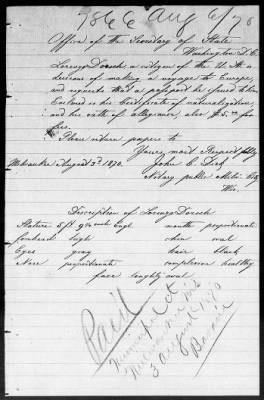 7866 Aug 6/70
Office of the Secretary of State
Washington D.C.
Lorenz Dorsch, a citizen of the U.S. is
desirous of making a voyage to Europe,
and requests that a passport be issued to him
Enclosed is his Certificate of naturalization,
and his oath of allegiance, also $5.00 for
fees.
Please return papers to
Yours, most Respectfully
Milwaukee August 3d 1870. John C.
Notary public Milw. Cty
Wis.
Description of Lorenz Dorsch
Stature 5 ft 9 1/2 inch high mouth proportionate
forehead high chin oval
Eyes gray hair black
Nose proportionate complexion healthy
face lengthy oval
Paid
Milwaukee Wis
3 August 1870